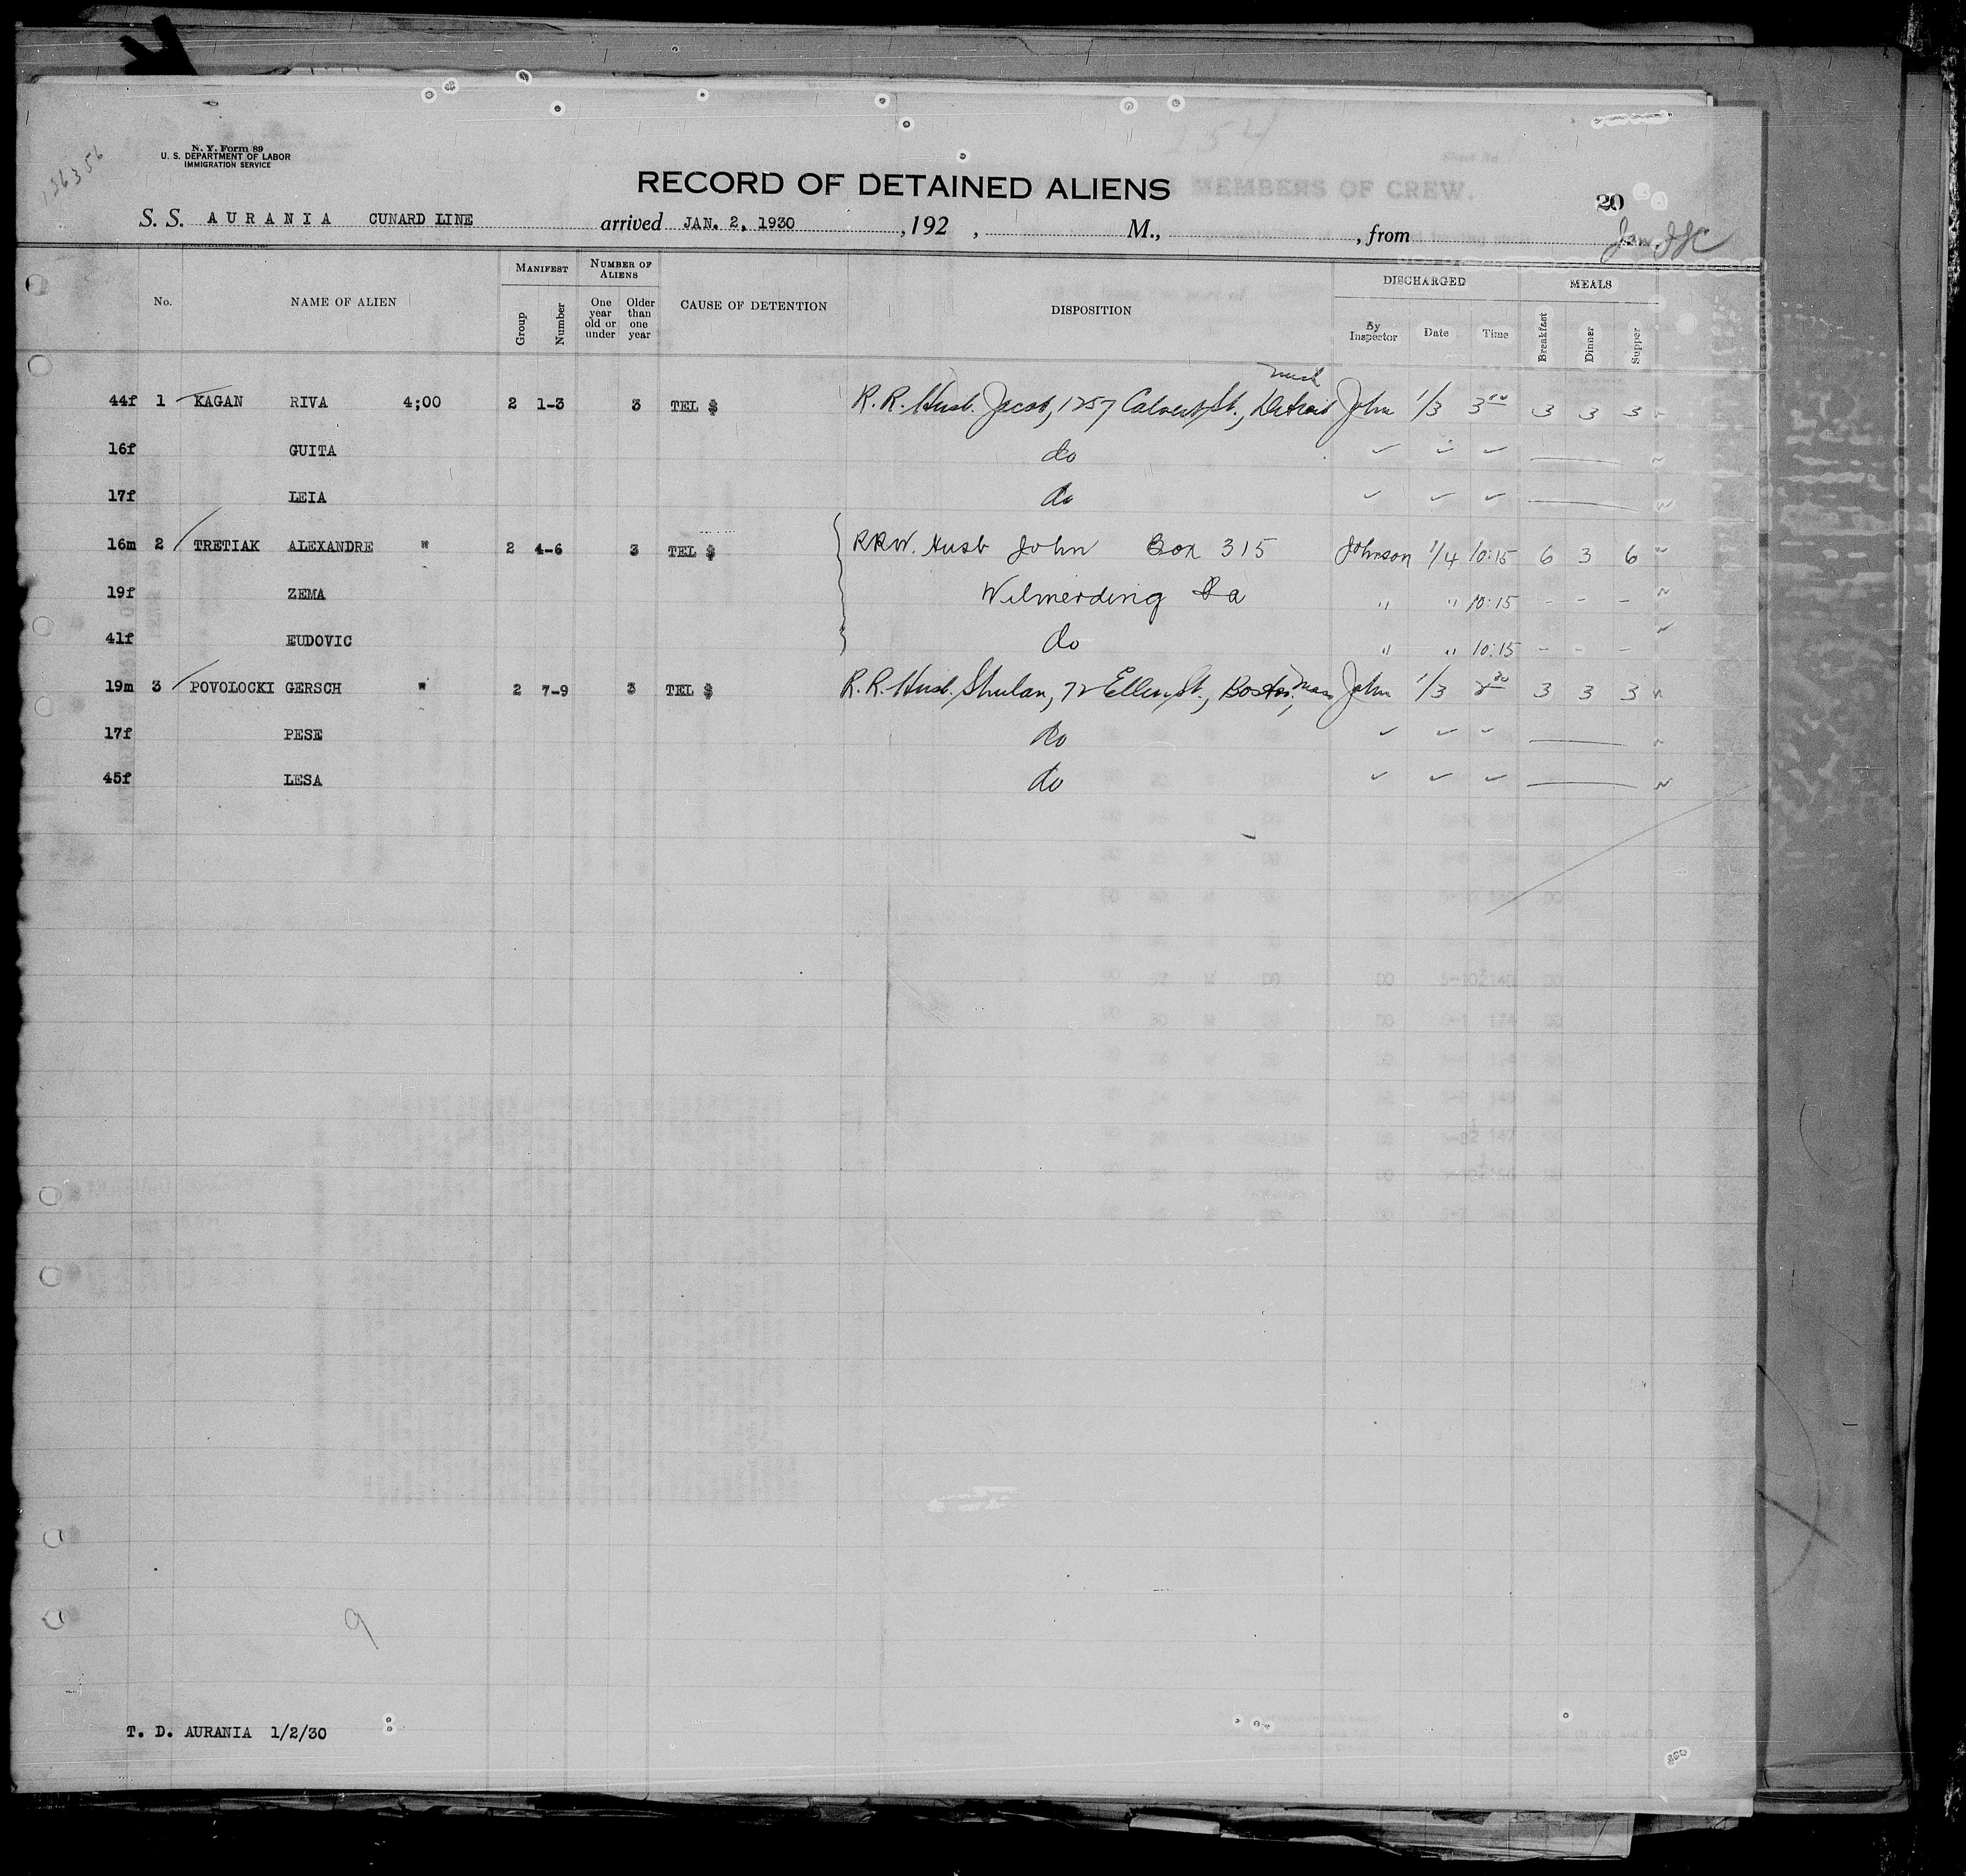 136356
N. Y. Form 89
U. S. DEPARTMENT OF LABOR
IMMIGRATION SERVICE
254
RECORD OF DETAINED ALIENS
MEMBERS OF CREW.
20
S. S. AURANIA CUNARD LINE arrived JAN. 2, 1930 , 192 , M., , from
No. NAME OF ALIEN MANIFEST NUMBER OF ALIENS CAUSE OF DETENTION DISPOSITION DISCHARGED MEALS
Group Number One year old or under Older than one year By Inspector Date Time Breakfast Dinner Supper
44f 1 KAGAN RIVA 4;00 2 1-3 3 TEL $ R.R. Husb. Jacob, 1257 Calvert St., Detroit Mich John 1/3 3 00 3 3 3
16f GUITA do
17f LEIA do
16m 2 TRETIAK ALEXANDRE " 2 4-6 3 TEL $ RRW. Husb John Box 315 Johnson 1/4 10:15 6 3 6
19f ZEMA Wilmerding Pa " " 10:15 - - -
41f EUDOVIC do " " 10:15 - - -
19m 3 POVOLOCKI GERSCH " 2 7-9 3 TEL $ R.R. Husb. Shulan, 72 Ellen St., Boston, Mass John 1/3 3 3 3
17f PESE do
45f LESA do
9
T. D. AURANIA 1/2/30